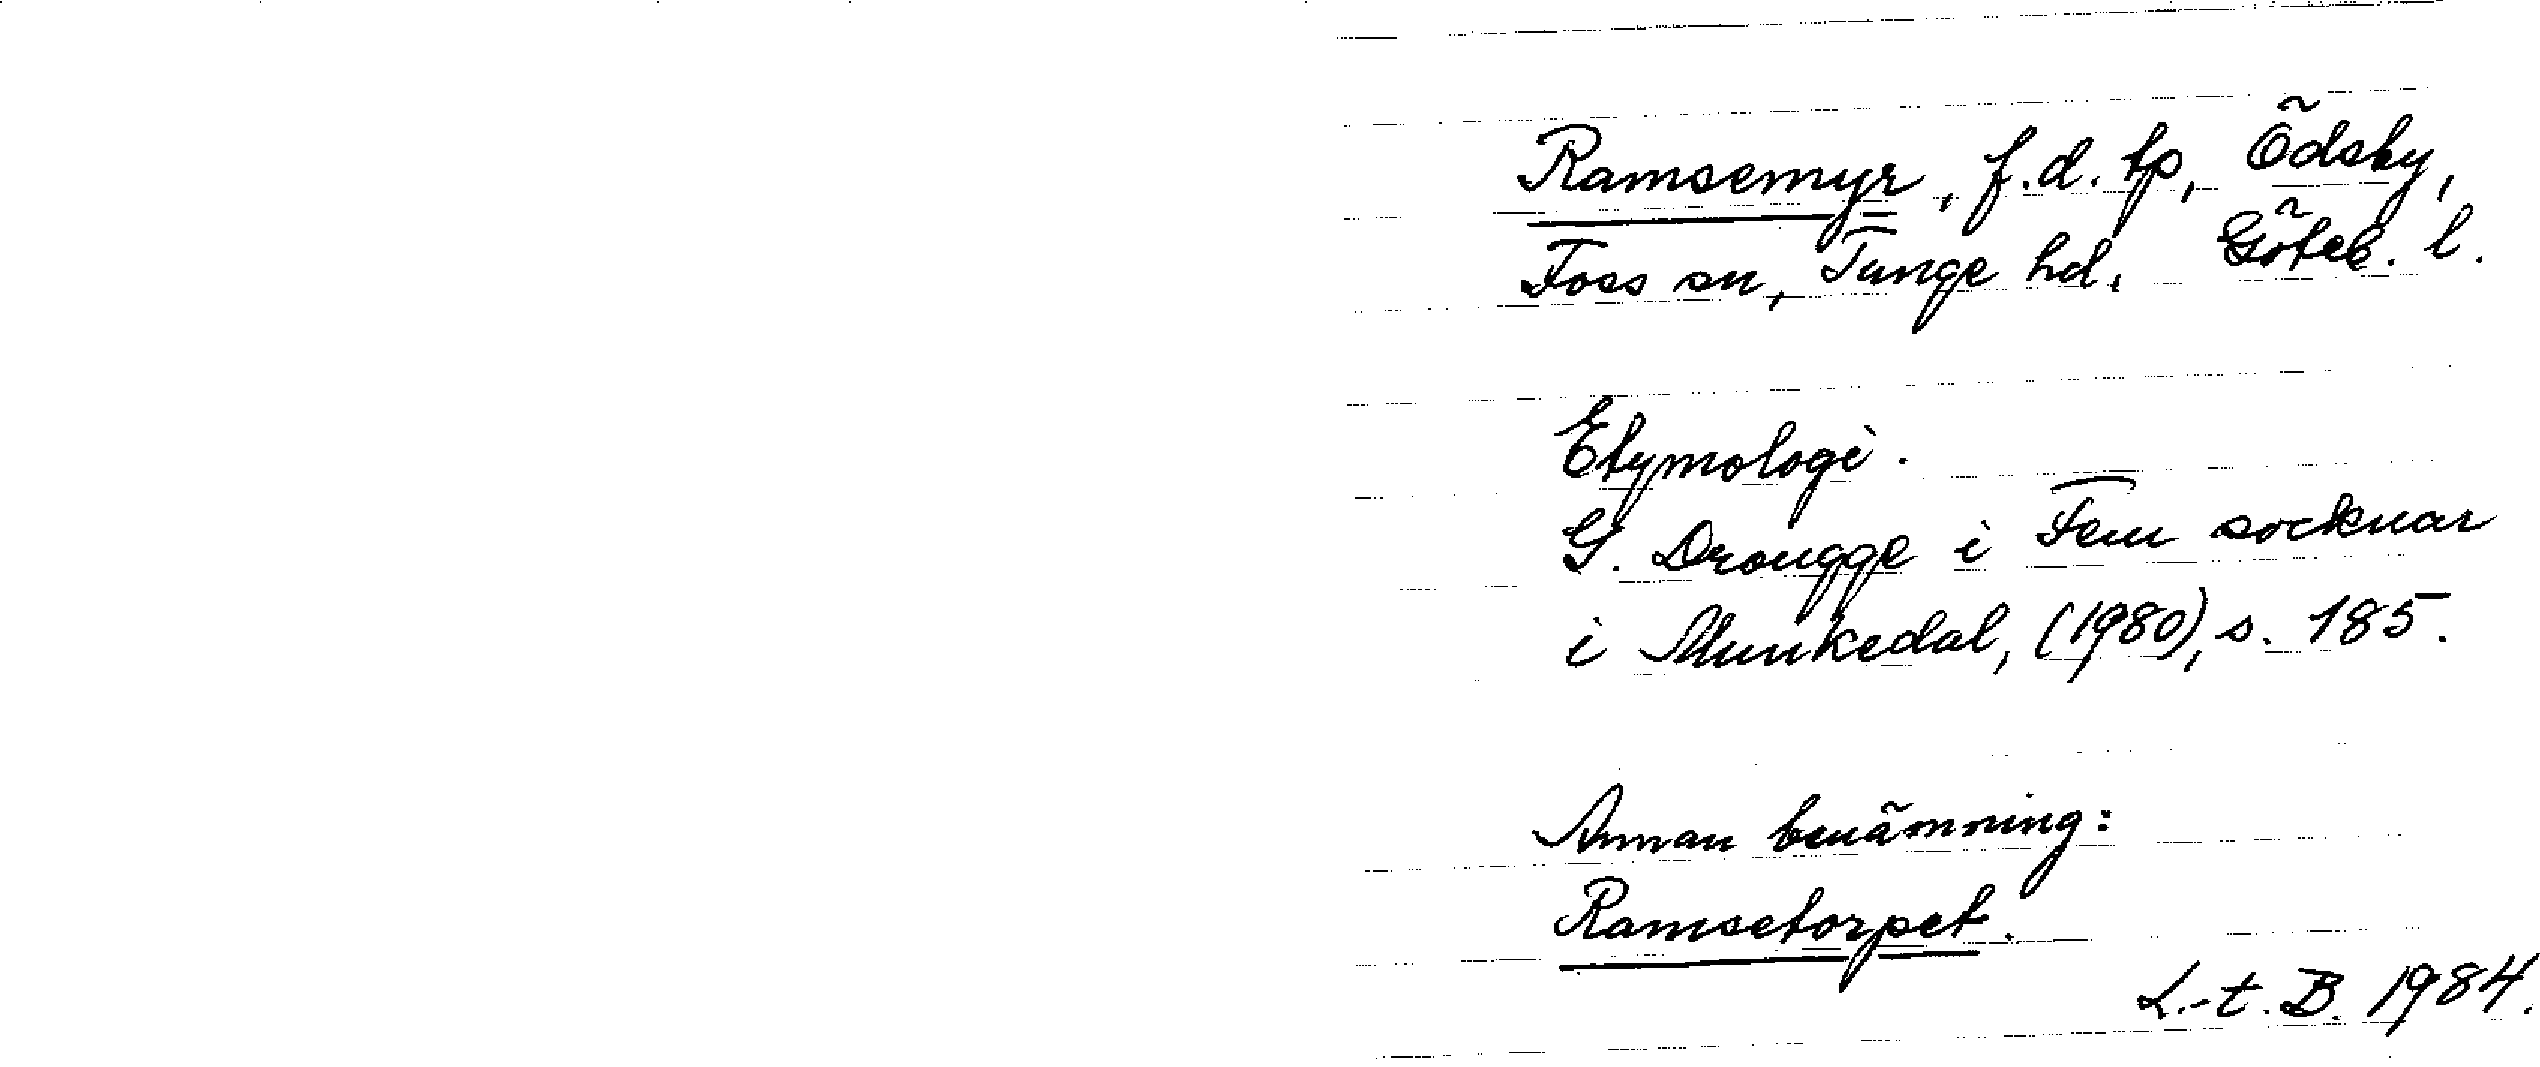 Ramsemyr, f.d. tp, Ödsby,
Foss sn, Tunge hd, Göteb. l.
Etymologi.
G. Drougge i Fem socknar
i Munkedal, (1980), s. 185.
Annan benämning:
Ramsetorpet.
L.-t. B. 1984.